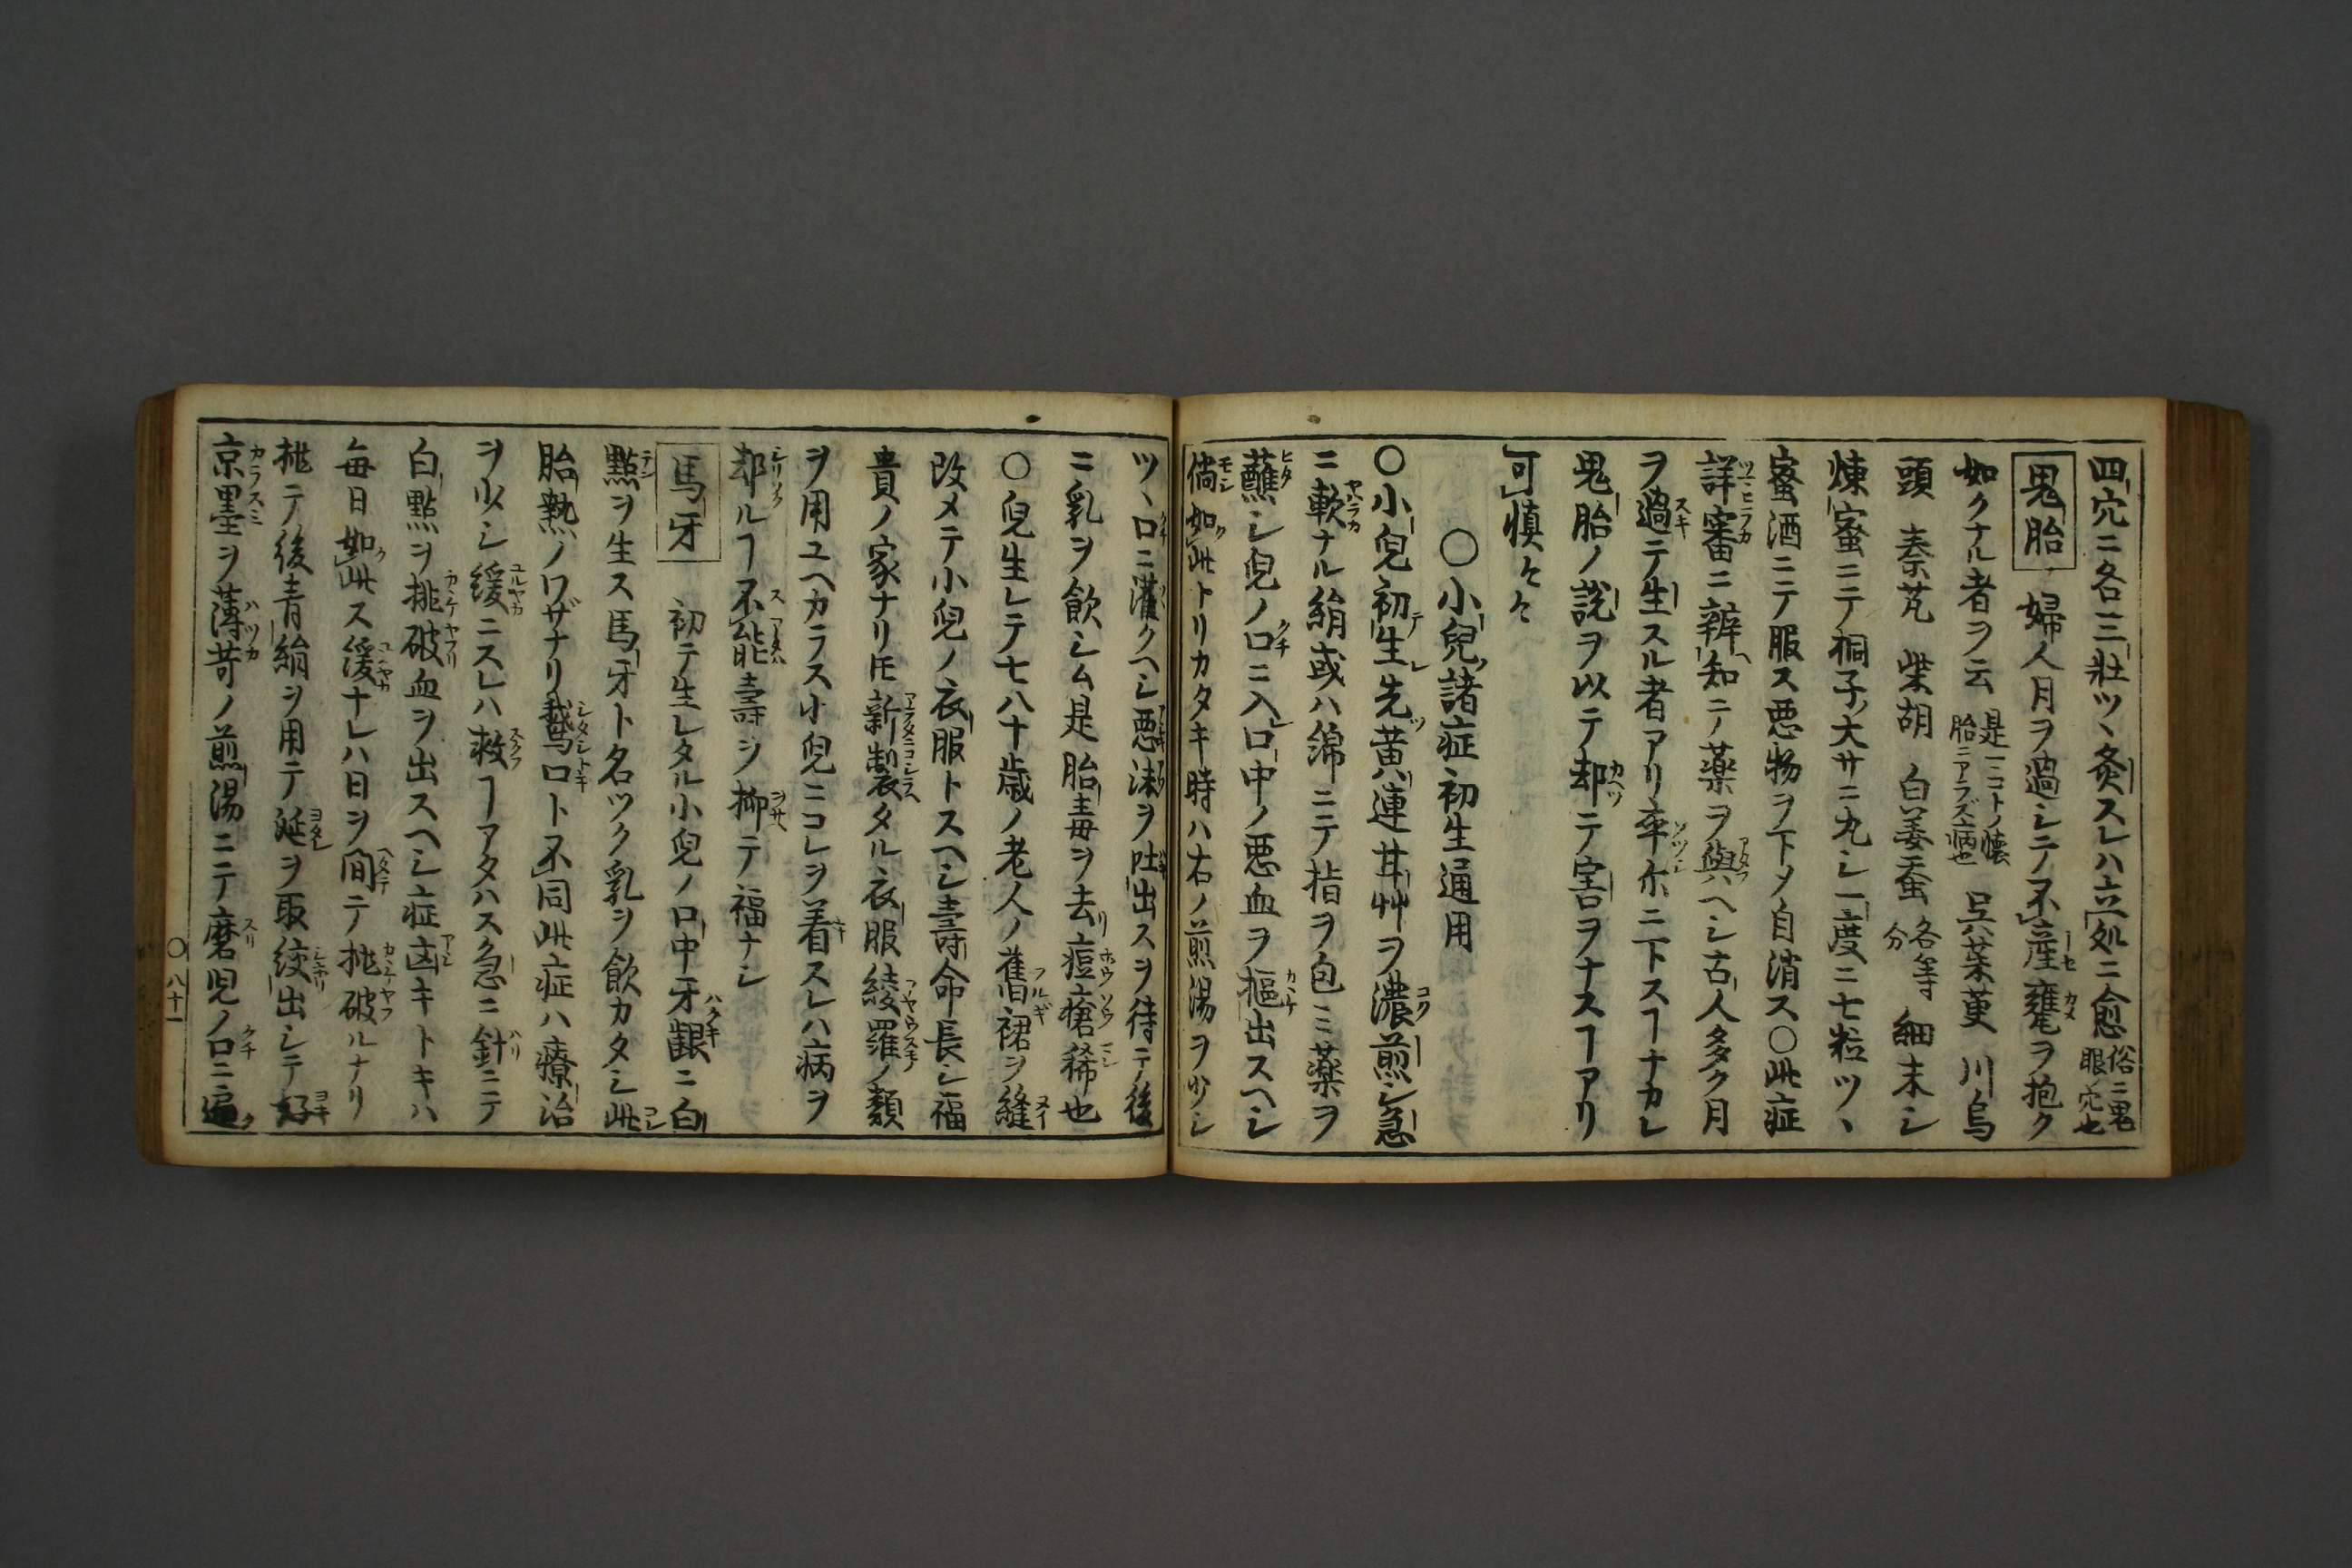 四穴ニ各三壮ツヽ灸スレハ立処ニ愈俗ニ鬼眼ノ穴也
鬼胎 婦人月ヲ過シテ不産甕ヲ抱ク
如クナル者ヲ云是ニコトノ懐胎ニアラズ病也 呉茱萸 川烏
頭 秦艽 柴胡 白姜蚕各等分 細末シ
煉蜜ニテ桐子ノ大サニ丸シ一度ニ七粒ツヽ
蜜酒ニテ服ス悪物ヲ下メ自消ス〇此症
詳審ニ辨知ニノ薬ヲ與ヘシ古人多ク月
ヲ過テ生スル者アリ卒尓ニ下スヿナカレ
鬼胎ノ説ヲ以テ却テ害ヲナスヿアリ
可慎々々
〇小兒諸症初生通用
〇小兒初生先黄連甘艸ヲ濃煎シ急
ニ軟ナル絹或ハ綿ニテ指ヲ包ミ薬ヲ
蘸シ兒ノ口ニ入口中ノ悪血ヲ摳出スヘシ
倘如此トリカタキ時ハ右ノ煎湯ヲ少シ
ツヽ口ニ灌クヘシ悪沫ヲ吐出スヲ待テ後
ニ乳ヲ飲シム是胎毒ヲ去リ痘瘡稀也
〇兒生レテ七八十歳ノ老人ノ舊裙ヲ縫
改メテ小兒ノ衣服トスヘシ壽命長シ福
貴ノ家ナリ𪜈新製タル衣服綾羅ノ類
ヲ用ユヘカラス小兒ニコレヲ着スレハ病ヲ
却ルヿ不能壽ヲ抑テ福ナシ
馬牙 初テ生レタル小兒ノ口中牙齦ニ白
點ヲ生ス馬牙ト名ツク乳ヲ飲カタシ此
胎熱ノワザナリ鵝口ト不同此症ハ療治
ヲ少シ緩ニスレハ救ヿアタハス急ニ針ニテ
白點ヲ挑破血ヲ出スヘシ症凶キトキハ
毎日如此ス緩ナレハ日ヲ間テ挑破ルナリ
挑テ後青絹ヲ用テ涎ヲ取絞出シテ好
京墨ヲ薄苛ノ煎湯ニテ磨児ノ口ニ遍
〇八十一